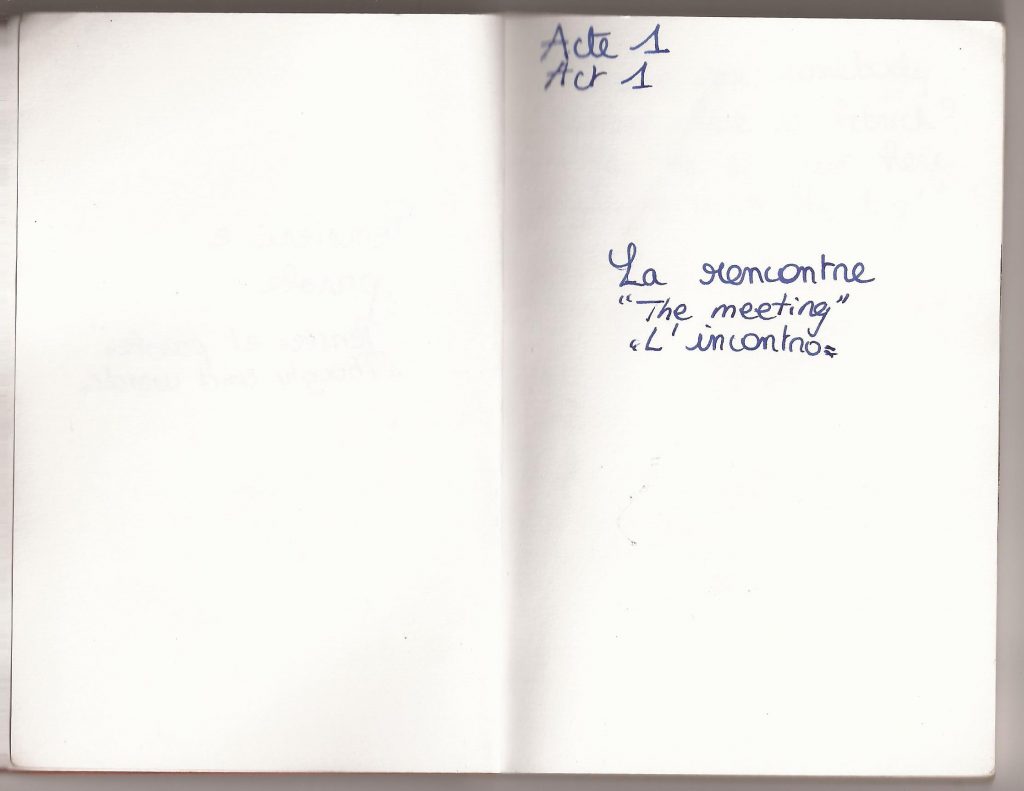 Acte 1
Act 1
La rencontre
"The meeting"
"L'incontro"